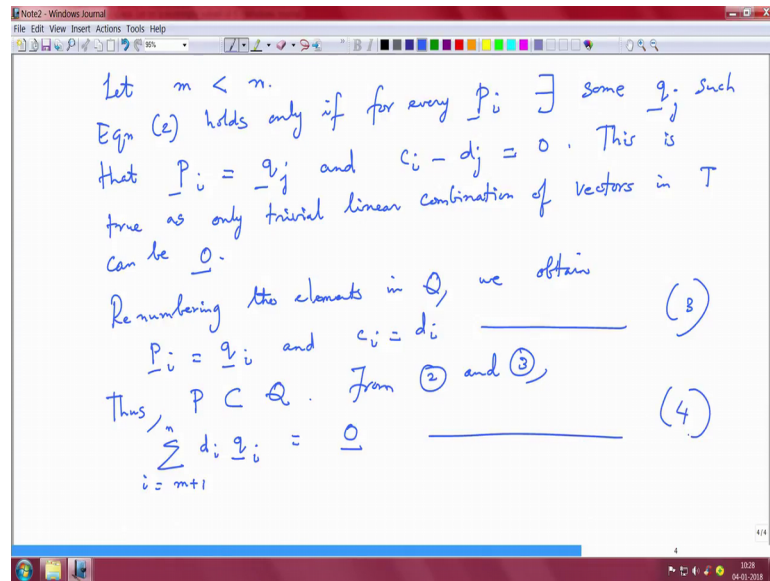 Note2 - Windows Journal
File Edit View Insert Actions Tools Help
95%
B I
Let m < n.
Eqn (2) holds only if for every p_i ∃ some q_j such
that p_i = q_j and c_i - d_j = 0. This is
true as only trivial linear combination of vectors in T
can be 0.
Renumbering the elements in Q, we obtain
p_i = q_i and c_i = d_i ———— (3)
Thus, P ⊂ Q. From ② and ③,
n
∑ d_i q_i = 0 ———— (4)
i = m+1
4/4
4
10:28
04-01-2018